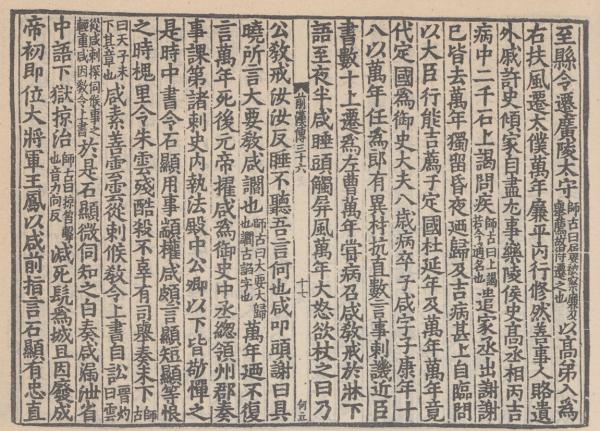 至縣令遷廣陵太守師古曰屢被察廉及舉薦故得遷之也以高弟入爲
右扶風遷太僕萬年廉平內行修然善事人賂遺
外戚許史傾家自盡尤事樂陵侯史高丞相丙吉
病中二千石上謁問疾師古曰上謁若今通名也遣家丞出謝謝
已皆去萬年獨留昏夜廼歸及吉病甚上自臨問
以大臣行能吉薦于定國杜延年及萬年萬年竟
代定國爲御史大夫八歲病卒子咸字子康年十
八以萬年任爲郎有異材抗直數言事刺譏近臣
書數十上遷爲左曹萬年嘗病召咸敎戒於牀下
語至夜半咸睡頭觸屏風萬年大怒欲杖之曰乃
前漢傳三十六 十七 何五
公敎戒汝汝反睡不聽吾言何也咸叩頭謝曰具
曉所言大要敎咸讇也師古曰大要大歸也讇古諂字也萬年廼不復
言萬年死後元帝擢咸爲御史中丞總領州郡奏
事課第諸刺史內執法殿中公卿以下皆敬憚之
是時中書令石顯用事顓權咸頗言顯短顯等恨
之時槐里令朱雲殘酷殺不辜有司舉奏未下師古
曰天子未下其章也咸素善雲雲從刺候敎令上書自訟晉灼曰雲
從咸刺探伺候事之輕重咸因敎令上書於是石顯微伺知之白奏咸漏泄省
中語下獄掠治師古曰掠笞擊也音力向反減死髡爲城旦因廢成
帝初即位大將軍王鳳以咸前指言石顯有忠直